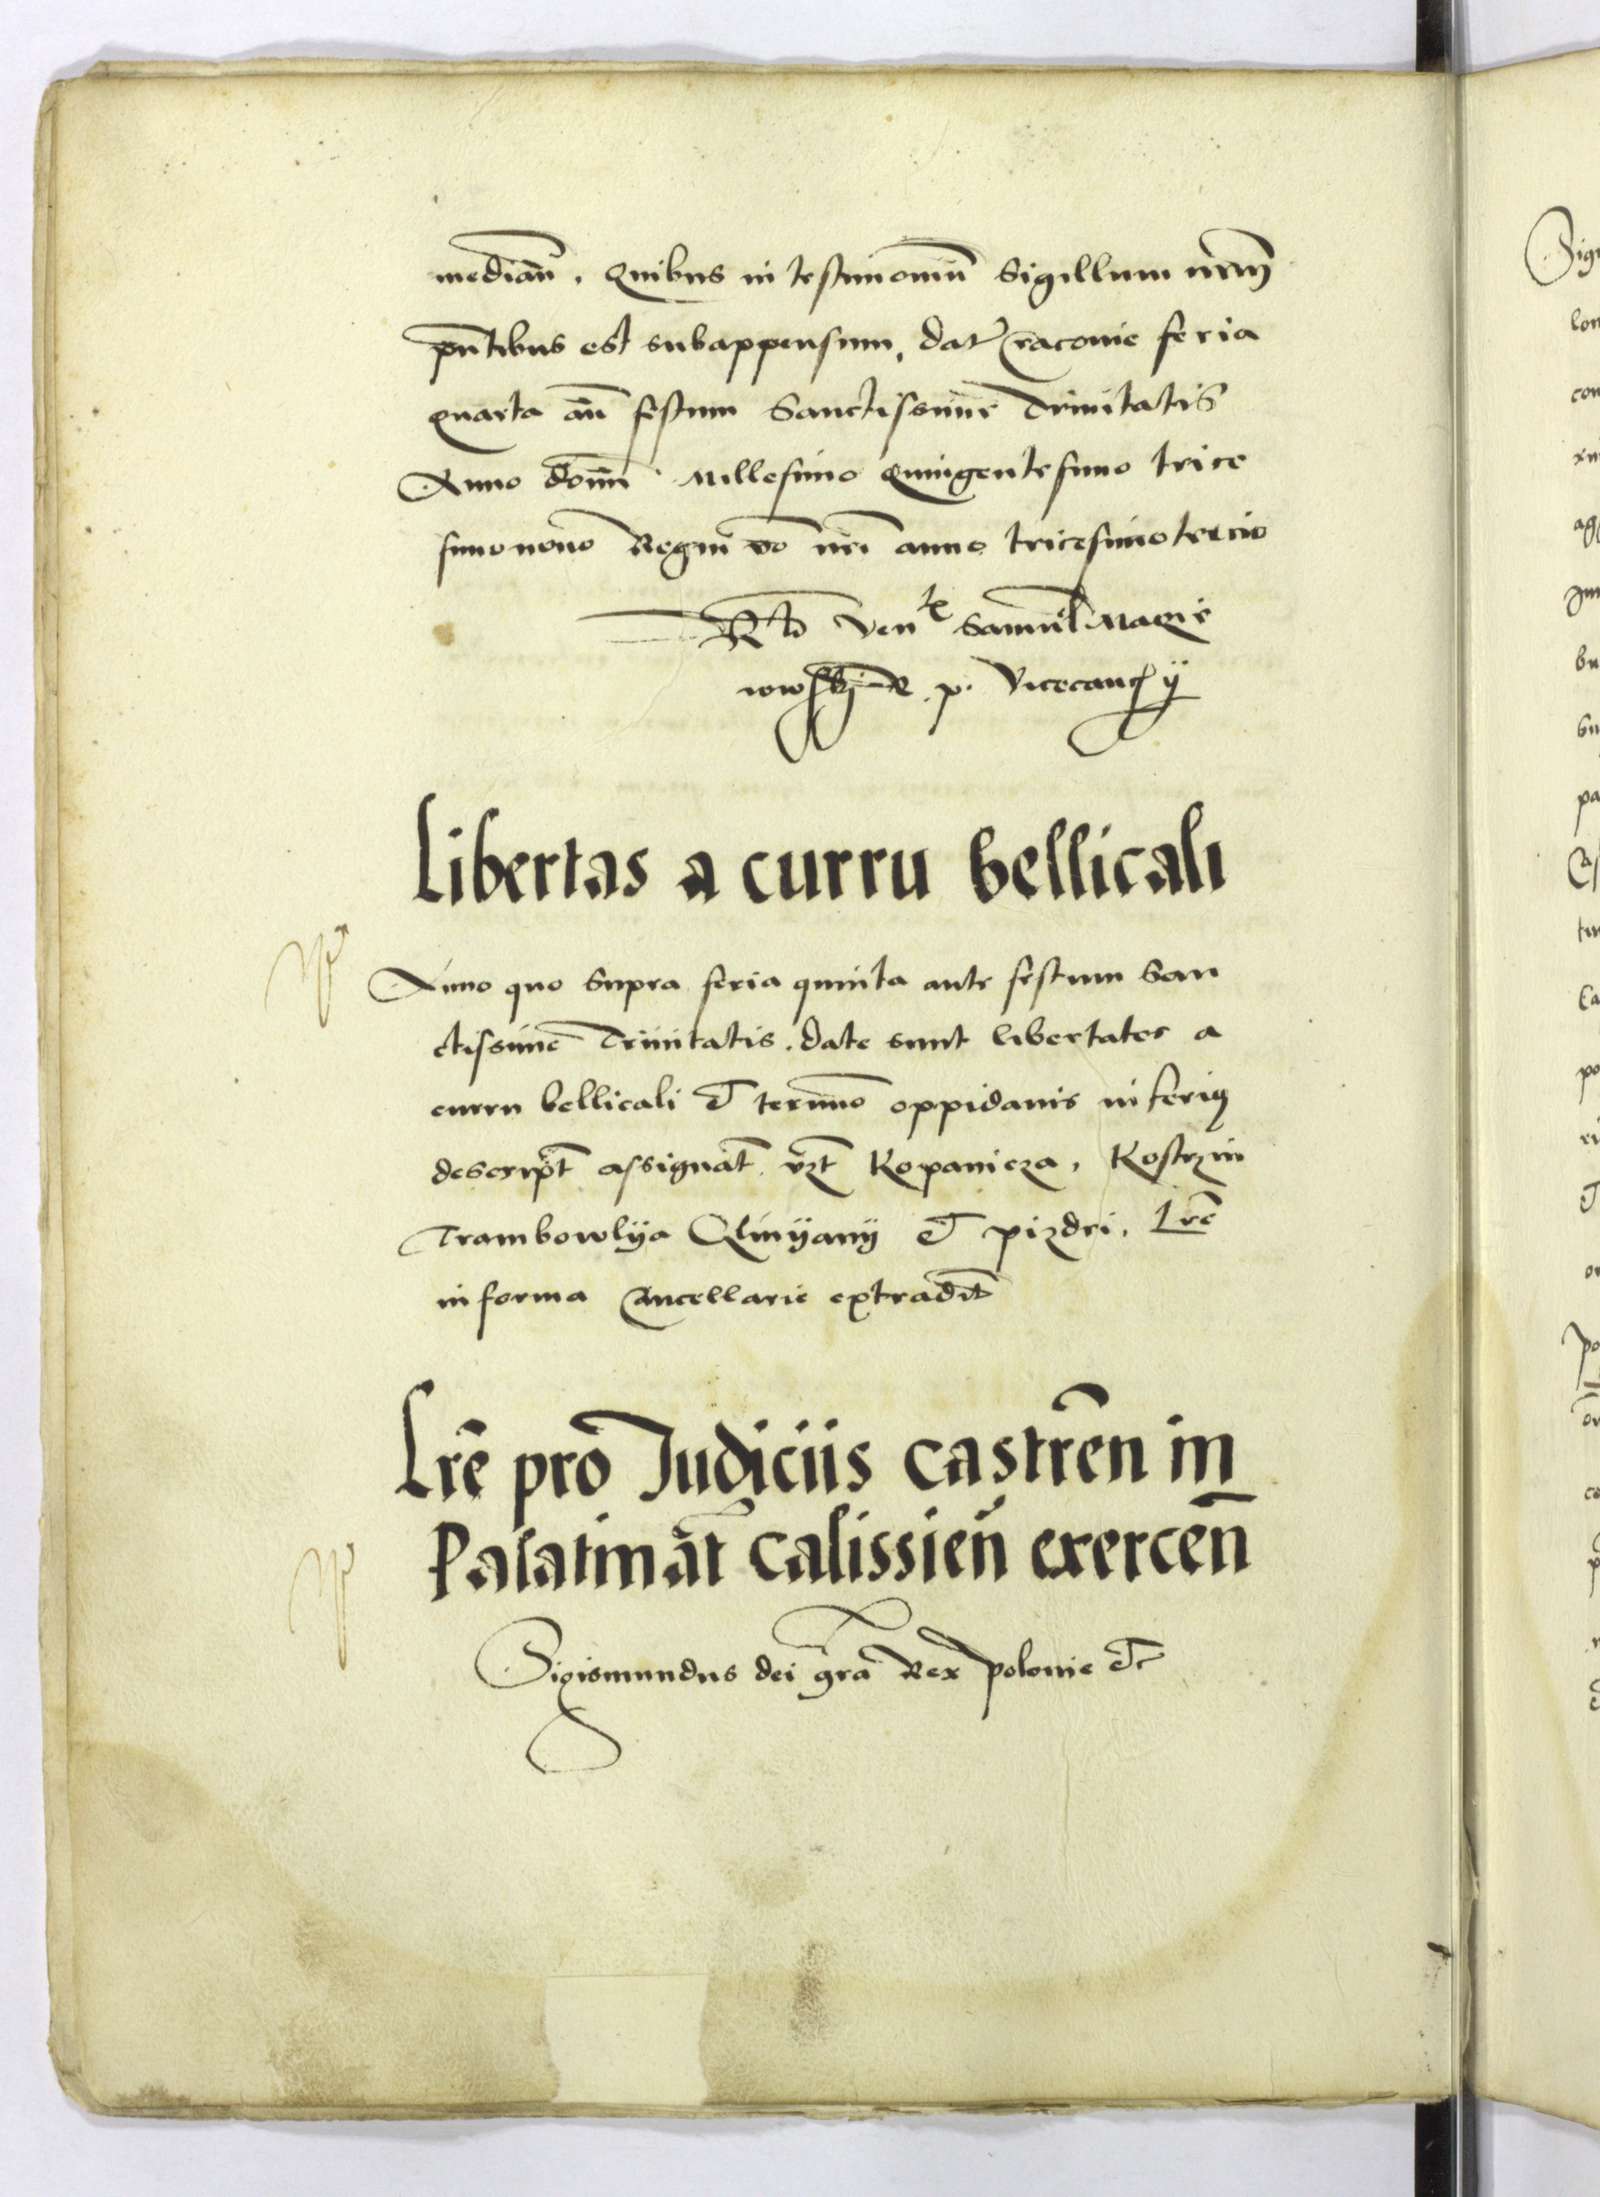 mediañ. Quibus in testimoniũ Sigillum nr̃m
pñtibus est subappensum, dat Cracovie feria
quarta añ festum Sanctissime Trinitatis
Anno doñi Millesimo Quingentesimo trice
simonono Regni vo nr̃i anno tricesimotercio
Rᵗⁱᵒ Venᵗᵉ Samuel Macie
iowskij R. p. Vicecancҙij
Libertas a curru bellicali
Anno quo supra feria quinta ante festum San
ctissime Trinitatis. date sunt libertates a
curru bellicali et termino oppidanis inferius
descript̃ assignat̃ vҙt Kopanicza, Kostrzin
Trambowlya Qlinÿanÿ et pizdri. Lr̃e
in forma Cancellarie extradit̃
Lr̃e pro Judiciis castreñ in
Palatinat̃ Calissieñ exerceñ
Sigismundus dei gr̃a Rex polonie etc